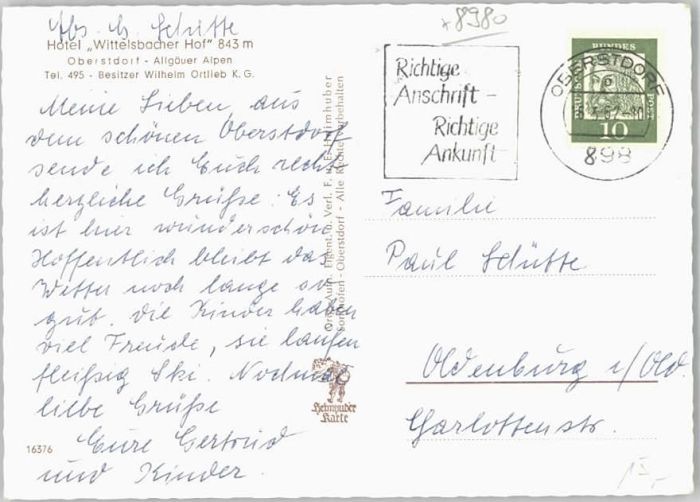 Abs. G. Schütte
Hotel „Wittelsbacher Hof" 843 m
Oberstdorf - Allgäuer Alpen
Tel. 495 - Besitzer Wilhelm Ortlieb K. G.
Meine Lieben, aus
dem schönen Oberstdorf
sende ich Euch recht
herzliche Grüße. Es
ist hier wunderschön
Hoffentlich bleibt das
Wetter noch lange so
gut. Die Kinder haben
viel Freude, sie laufen
fleißig Ski. Nochmals
liebe Grüße
Eure Gertrud
und Kinder.
16376
Orig.-Aufn. Eigent. u. Verl. F. u. E. Heimhuber
Sonthofen-Oberstdorf - Alle Rechte vorbehalten
Heimhuber
Karte
8980
Richtige
Anschrift -
Richtige
Ankunft
OBERSTDORF
898
BUNDES
POST
DEUTSCHE
10
Familie
Paul Schütte
Oldenburg i/Old.
Charlottenstr.